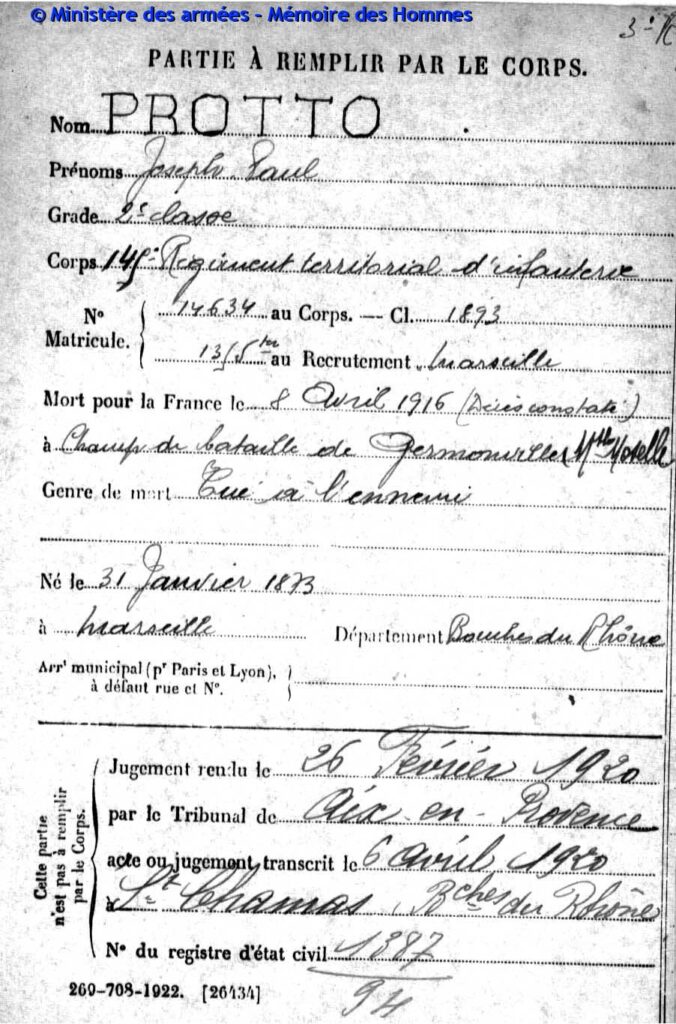 © Ministère des armées - Mémoire des Hommes
PARTIE À REMPLIR PAR LE CORPS.
Nom PROTTO
Prénoms Joseph Paul
Grade 2e classe
Corps 145e Régiment territorial d'infanterie
No Matricule. 14634 au Corps. — Cl. 1893
au Recrutement Marseille
Mort pour la France le 8 Avril 1916 (Décès constaté)
à Champ de bataille de Moselle
Genre de mort Tué à l'ennemi
Né le 31 Janvier 1873
à Marseille Département Bouches du Rhône
Arrt municipal (pr Paris et Lyon),
à défaut rue et No.
Cette partie
n'est pas à remplir
par le Corps.
Jugement rendu le 26 Février 1920
par le Tribunal de Aix-en-Provence
acte ou jugement transcrit le 6 avril 1920
à St Chamas, Bches du Rhône
No du registre d'état civil 1387
94
269-708-1922. [26434]